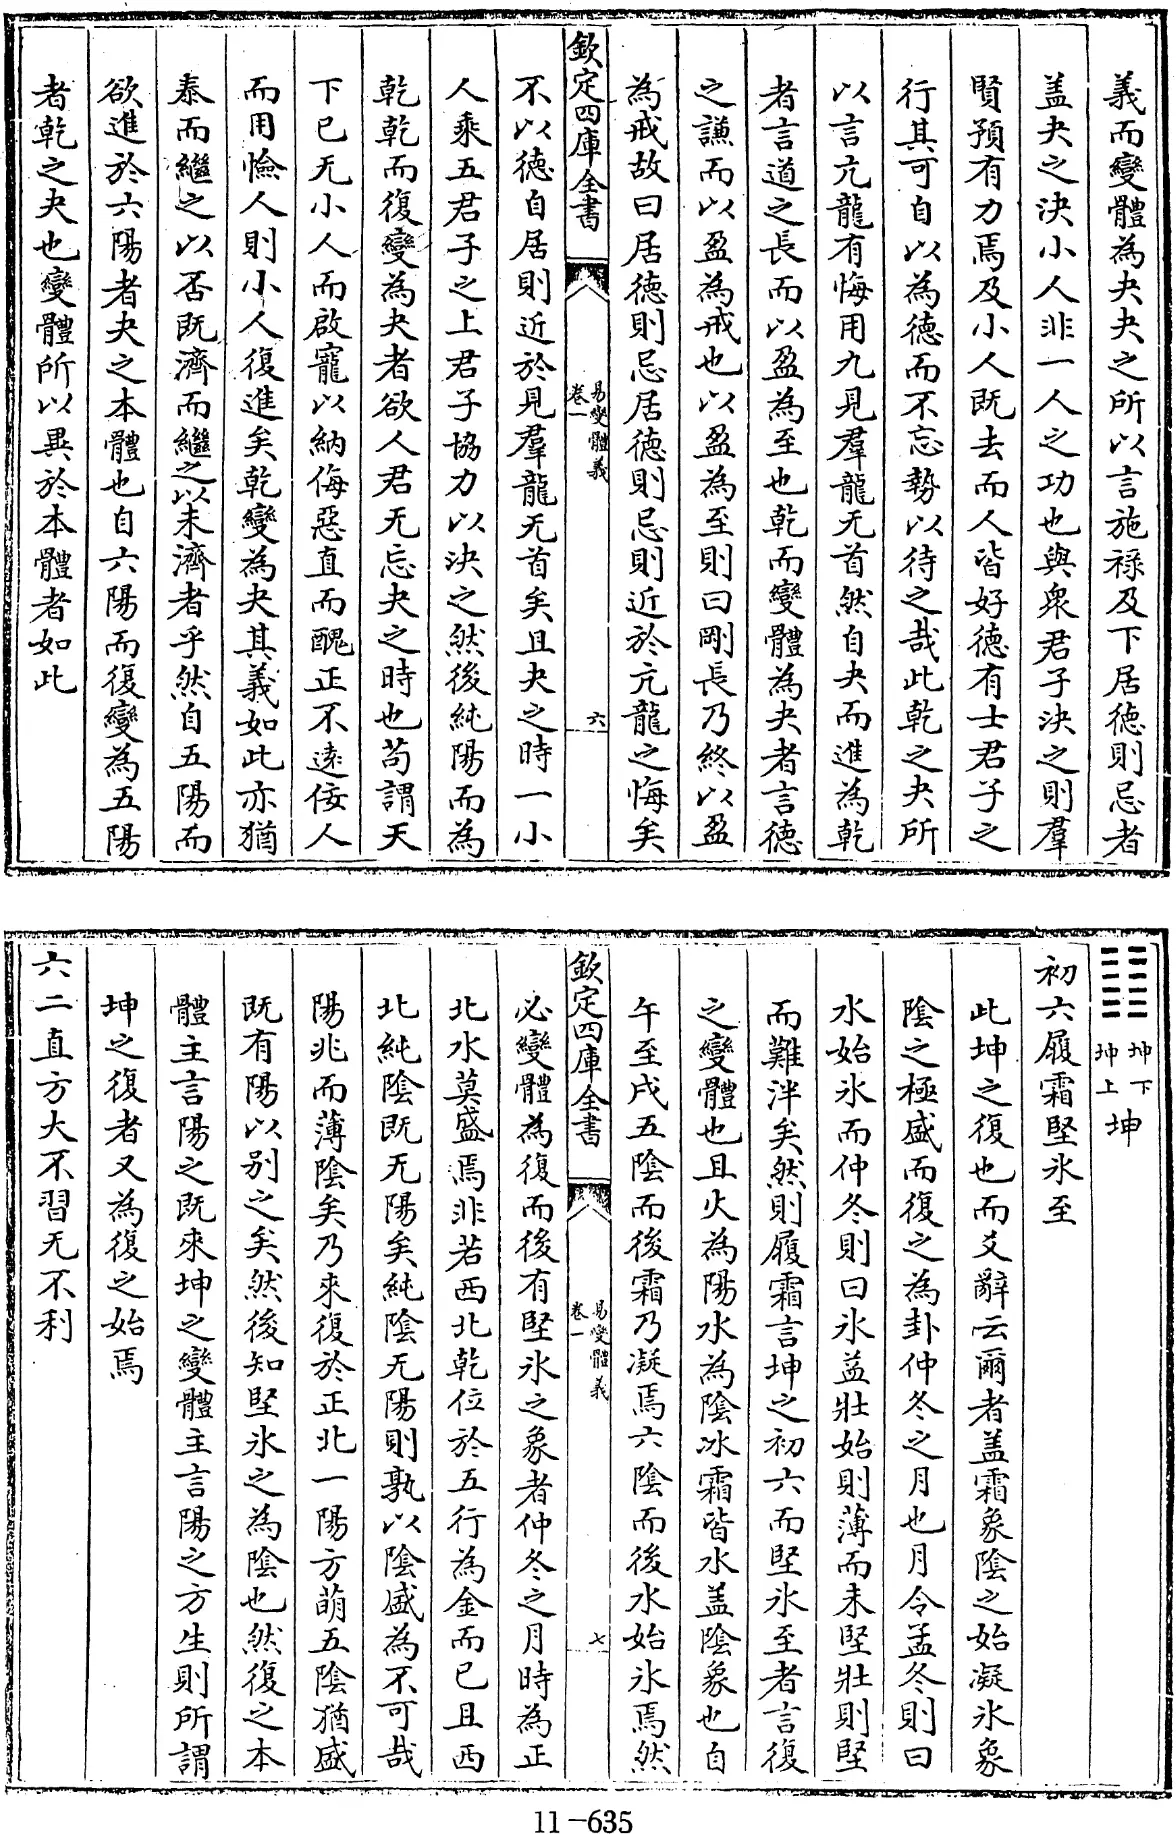 義而變體為夬夬之所以言施祿及下居徳則忌者
盖夬之決小人非一人之功也與衆君子決之則羣
賢預有力焉及小人既去而人皆好徳有士君子之
行其可自以為徳而不忘勢以待之哉此乾之夬所
以言亢龍有悔用九見羣龍无首然自夬而進為乾
者言道之長而以盈為至也乾而變體為夬者言徳
之謙而以盈為戒也以盈為至則曰剛長乃終以盈
為戒故曰居徳則忌居徳則忌則近於亢龍之悔矣
欽定四庫全書
易變體義
卷一
六
不以徳自居則近於見羣龍无首矣且夬之時一小
人乘五君子之上君子協力以決之然後純陽而為
乾乾而復變為夬者欲人君无忘夬之時也苟謂天
下已无小人而啟寵以納侮惡直而醜正不逺佞人
而用憸人則小人復進矣乾變為夬其義如此亦猶
泰而繼之以否既濟而繼之以未濟者乎然自五陽而
欲進於六陽者夬之本體也自六陽而復變為五陽
者乾之夬也變體所以異於本體者如此
䷁
坤下
坤上
坤
初六履霜堅氷至
此坤之復也而爻辭云爾者盖霜象陰之始凝氷象
陰之極盛而復之為卦仲冬之月也月令孟冬則曰
水始氷而仲冬則曰氷益壯始則薄而未堅壯則堅
而難泮矣然則履霜言坤之初六而堅氷至者言復
之變體也且火為陽水為陰冰霜皆水盖陰象也自
午至戌五陰而後霜乃凝焉六陰而後水始氷焉然
欽定四庫全書
易變體義
卷一
七
必變體為復而後有堅氷之象者仲冬之月時為正
北水莫盛焉非若西北乾位於五行為金而已且西
北純陰既无陽矣純陰无陽則孰以陰盛為不可哉
陽兆而薄陰矣乃來復於正北一陽方萌五陰猶盛
既有陽以别之矣然後知堅氷之為陰也然復之本
體主言陽之既來坤之變體主言陽之方生則所謂
坤之復者又為復之始焉
六二直方大不習无不利
11-635